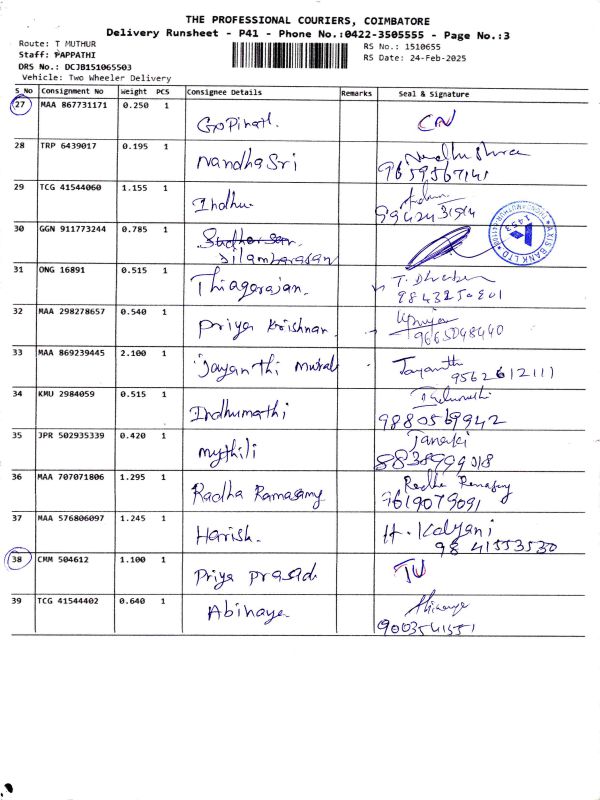 THE PROFESSIONAL COURIERS, COIMBATORE
Delivery Runsheet - P41 - Phone No.:0422-3505555 - Page No.:3
Route: T MUTHUR
Staff: PAPPATHI
DRS No.: DCJB151065503
Vehicle: Two Wheeler Delivery
RS No.: 1510655
RS Date: 24-Feb-2025
S_No Consignment No Weight PCS Consignee Details Remarks Seal & Signature
27 MAA 867731171 0.250 1
Gopinath. CN
28 TRP 6439017 0.195 1
Nandha Sri
9659567141
29 TCG 41544060 1.155 1
Indhu
30 GGN 911773244 0.785 1
Sudharsan
Silambarasan
AXIS BANK LTD
1453
31 ONG 16891 0.515 1
Thiagarajan.
32 MAA 298278657 0.540 1
Priya Krishnan.
9665048440
33 MAA 869239445 2.100 1
Jayanthi Murali Jayanthi
9562612111
34 KMU 2984059 0.515 1
Indhumathi
9880569942
35 JPR 502935339 0.420 1
Mythili Janaki
8838999018
36 MAA 707071806 1.295 1
Radha Ramasamy Radha Ramasamy
7619079091
37 MAA 576806097 1.245 1
Harish. H. Kalyani
98 41553530
38 CMM 504612 1.100 1
Priya Prasad
39 TCG 41544402 0.640 1
Abinaya Abinaya
9003541551